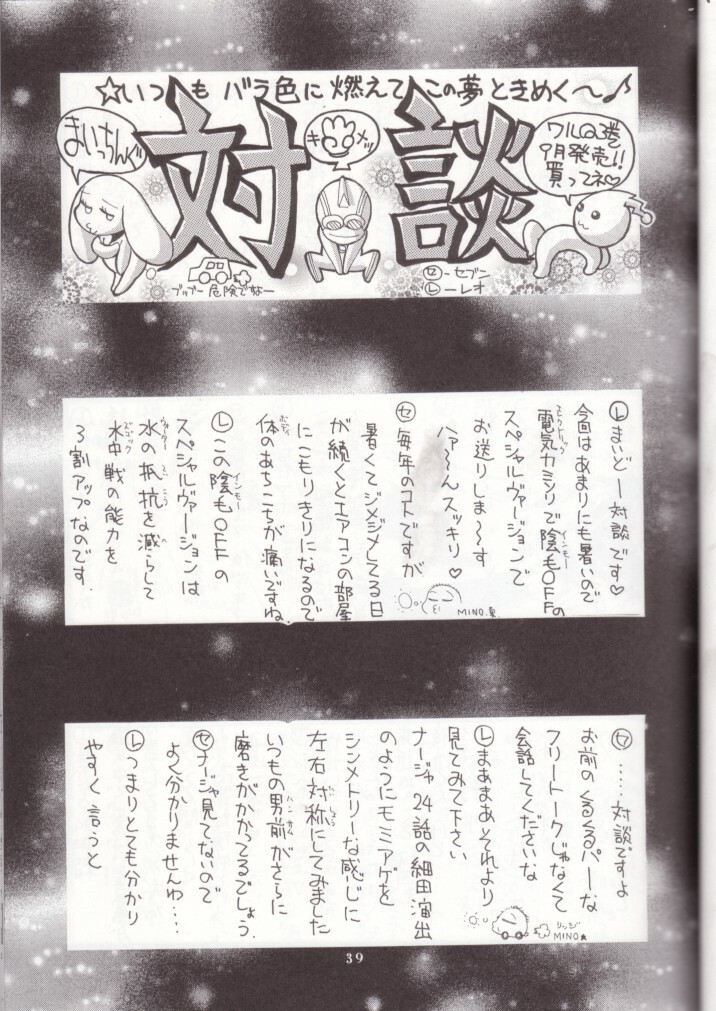 ☆いつもバラ色に燃えてこの夢ときめく〜♪
まいっちんぐ
対談
キメッ
ワルQ3巻
9月発売!!
買ってネ♡
ブッブー危険でなー
セ-セブン
レ-レオ
レ まいどー対談です♡
今回はあまりにも暑いので
電気カミソリで陰毛OFFの
スペシャルヴァージョンで
お送りしま〜〜す
ハァ〜〜んスッキリ♡
セ 毎年のコトですが
暑くてジメジメしてる日
が続くとエアコンの部屋
にこもりきりになるので
体のあちこちが痛いですね
レ この陰毛OFFの
スペシャルヴァージョンは
水の抵抗を減らして
水中戦の能力を
3割アップなのです.
MINO.
セ ……対談ですよ
お前のくるくるパーな
フリートークじゃなくて
会話してくださいな
レ まあまあそれより
見てみて下さい
ナージャ24話の細田演出
のようにモミアゲを
シンメトリーな感じに
左右対称にしてみました
いつもの男前がさらに
磨きがかかってるでしょう.
セ ナージャ見てないので
よく分かりませんわ…
レ つまりとても分かり
やすく言うと
リッジ
MINO★
39